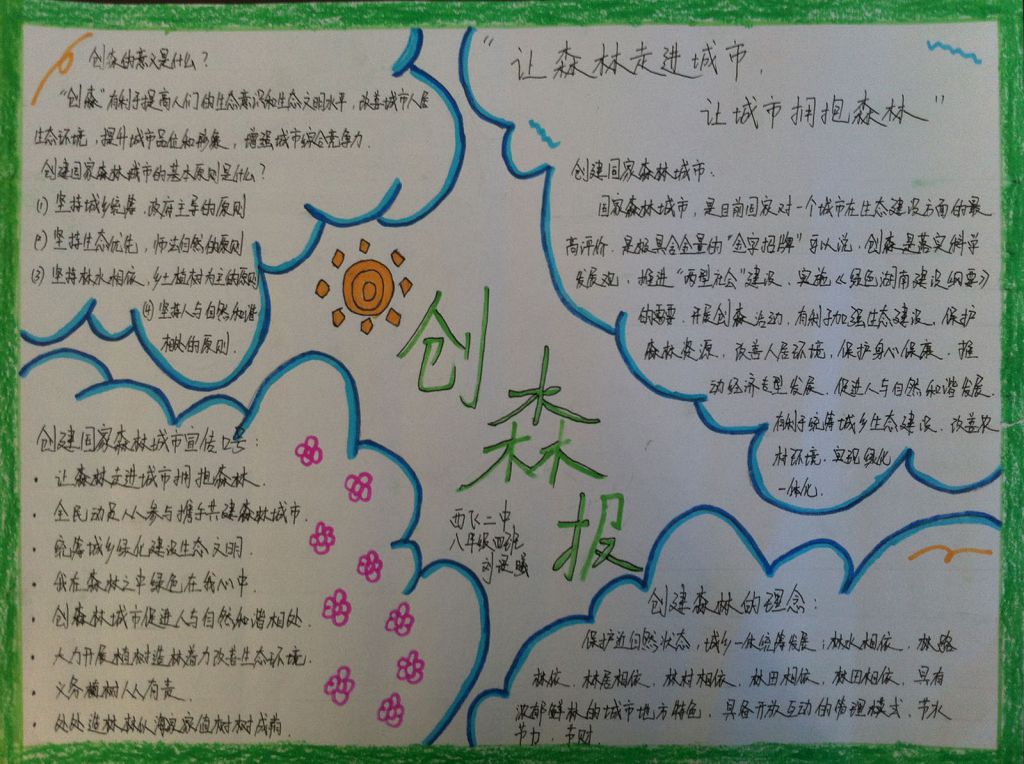 创森的意义是什么？
"创森"有利于提高人们的生态意识和生态文明水平，改善城市人居
生态环境，提升城市品位和形象，增强城市综合竞争力.
创建国家森林城市的基本原则是什么？
(1) 坚持城乡统筹，政府主导的原则
(2) 坚持生态优先，师法自然的原则
(3) 坚持林水相依，乡土植树为主的原则
(4) 坚持人与自然和谐
相处的原则.
"让森林走进城市，
让城市拥抱森林"
创建国家森林城市：
国家森林城市，是目前国家对一个城市在生态建设方面的最
高评价，是极具含金量的"金字招牌"可以说，创森是落实科学
发展观，推进"两型社会"建设，实施《绿色湖南建设纲要》
的需要.开展创森活动，有利于加强生态建设，保护
森林资源，改善人居环境，保护身心保康，推
动经济走型发展，促进人与自然和谐发展.
有利于统筹城乡生态建设、改善农
村环境，实现绿化
一体化.
创
森
报
西飞二中
八年级四班
创建国家森林城市宣传口号：
· 让森林走进城市拥抱森林.
· 全民动员人人参与携手共建森林城市.
· 统筹城乡绿化建设生态文明.
· 我在森林之中绿色在我心中
· 创森林城市促进人与自然和谐相处.
· 大力开展植树造林着力改善生态环境.
· 义务植树人人有责.
· 处处造林林
创建森林的理念：
保护近自然状态，城乡一体统筹发展；林水相依、林路
林依、林居相依、林村相依、林田相依、林田相依、具有
浓郁鲜林的城市地方特色，具备开放互动的管理模式，节水
节力，节财.